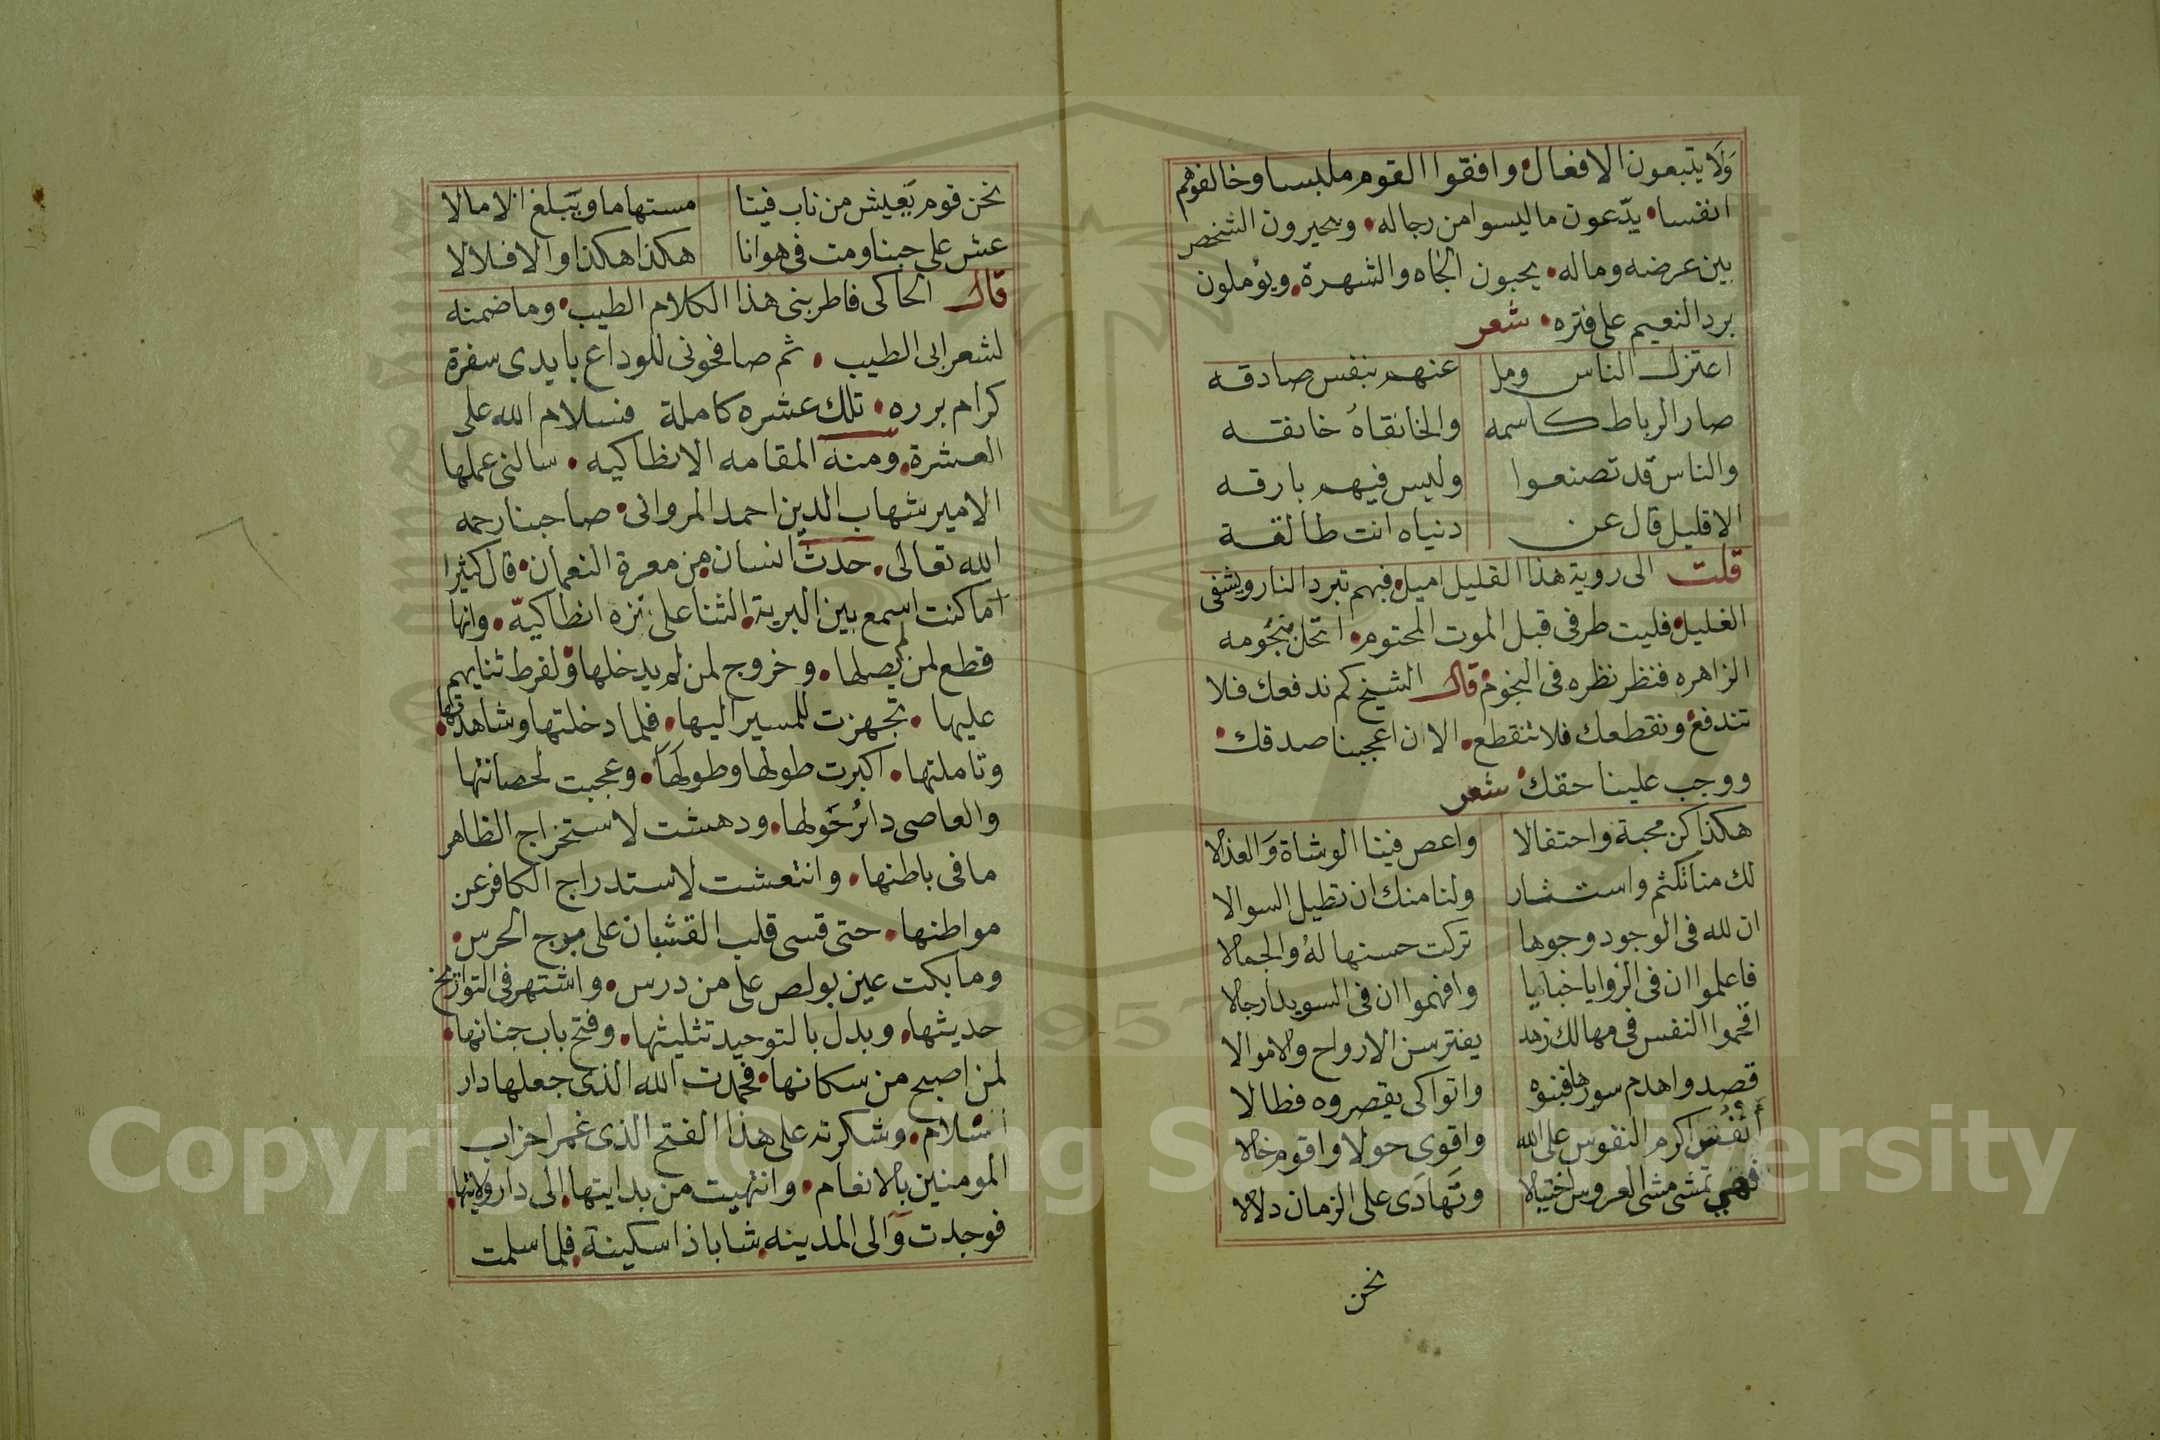 وَلَا يتبعون الافعال • وافقوا القوم ملبسا وخالفوهم
انفسا • يدّعون ما ليسوا من رجاله • ويحيرون الشخص
بين عرضه وماله • يحبون الجاه والشهرة • ويؤملون
برد النعيم على فتره • شعر
اعتزل الناس ومل عنهم بنفس صادقه
صار الرباط كاسمه والخانقاهُ خانقه
والناس قد تصنعوا وليس فيهم بارقه
الا قليل قال عن دنياه انت طالقة
قلت الى روية هذا القليل اميل • فبهم تبرد النار ويشفى
الغليل • فليت طرفى قبل الموت المحتوم • اتحل بنجومه
الزاهره فنظر نظره فى النجوم • قال الشيخ كم ندفعك فلا
تندفع • ونقطعك فلا تنقطع • الا ان اعجبنا صدقك •
ووجب علينا حقك • شعر
هكذا كن محبة واحتفالا واعص فينا الوشاة وَالعذالا
لك منا تكتم واستتار ولنا منك ان تطيل السوالا
ان لله فى الوجود وجوها تركت حسنها لهُ والجمالا
فاعلموا ان فى الزوايا خبايا وافهموا ان فى السويدا رجالا
اقحموا النفس فى مهالك زهد يفترسن الارواح والاموالا
قصدوا هدم سورها فبنوه واتوا كى يقصروه فطالا
أنفُس اكرم النفوس على الله واقوى حولا واقوم خالا
فهى تمشى مشى العروس اختيالا وتَهادَى على الزمان دلالا
نحن
نحن قوم يَعيش من ناب فينا مستهاما ويَبلغ الامالا
عش على حبنا ومت فى هوانا هكذا هكذا والا فلالا
قال الحاكى فاطربنى هذا الكلام الطيب • وما ضمنه
لشعر ابى الطيب • ثم صافحونى للوداع بايدى سفرة
كرام برره • تلك عشره كاملة فسلام الله على
العشرة • ومنه المقامه الانطاكيه • سالنى عملها
الامير شهاب الدين احمد المروانى • صاحبنا رحمه
الله تعالى • حدث انسان من معرة النعمان • قال كثيرا
اما كنت اسمع بين البرية • الثنا على نزه انطاكيّه • وانها
قطع لمن لم يصلها • وخروج لمن لم يدخلها • ولفرط ثنايهم
عليها • تجهزت للمسير اليها • فلما دخلتها وشاهدتها •
وتاملتها • اكبرت طولها وطَولَهَا • وعجبت لحصانتها
والعاصى دائر حَولها • ودهشت لاستخراج الظاهر
ما فى باطنها • وانتعشت لاستدراج الكافر عن
مواطنها • حتى قسى قلب القشبان على برج الحرس •
وما بكت عين بولص على من درس • واشتهر فى التواريخ
حديثها • وبدل بالتوحيد تثليثها • وفتح باب جنانها •
لمن اصبح من سكانها • فحمدت الله الذى جعلها دار
اسلام • وشكرته على هذا الفتح الذى غمر احزاب
المومنين بالانعام • وانتهيت من بدايتها • الى دار ولايتها •
فوجدت وَالى المدينه • شابا ذا سكينة • فلما سلمت
Copyright © King Saud University
1957